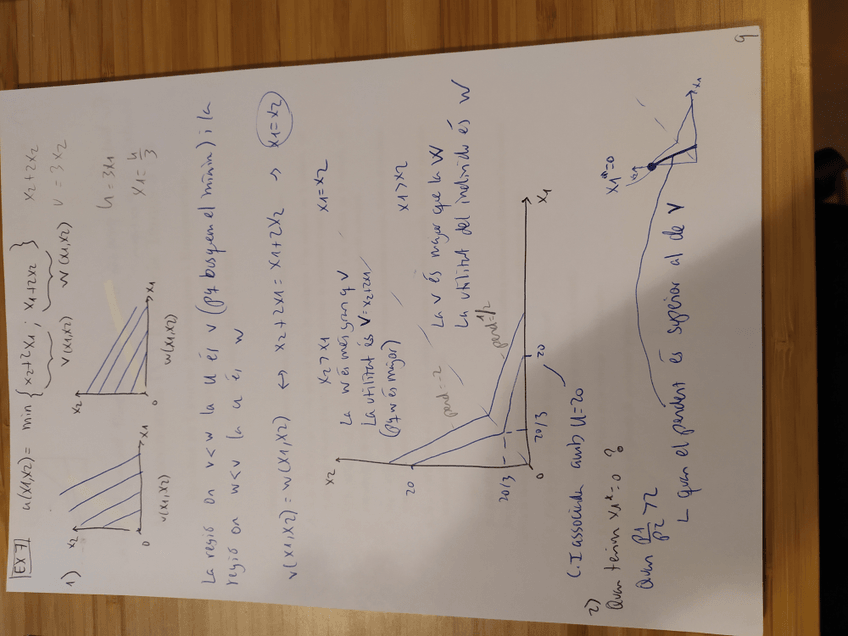 EX 7 u(x1,x2) = min { x2+2x1 ; x1+2x2 } x2+2x2
V(x1,x2) W(x1,x2) v = 3x2
1)
x2 x1 0 v(x1,x2)
x2 x1 0 w(x1,x2)
u = 3x1
x1 = u/3
La regió on v<w la u és v (pq busquem el mínim) i la
regió on w<v la u és w
v(x1,x2) = w(x1,x2) ↔ x2+2x1 = x1+2x2 → x1=x2
x2 > x1
La w és més gran q v
La utilitat és V=x2+2x1
(pq w és major)
x1=x2
x1>x2
La v és major que la W
La utilitat del individu és W
x2
20
20/3
0
20/3
20
x1
pend=-2
pend=1/2
C.I associada amb U=20
2)
Quan tenim x1*=0 ?
Quan p1/p2 > 2
quan el pendent és superior al de V
x1*=0
x1
9